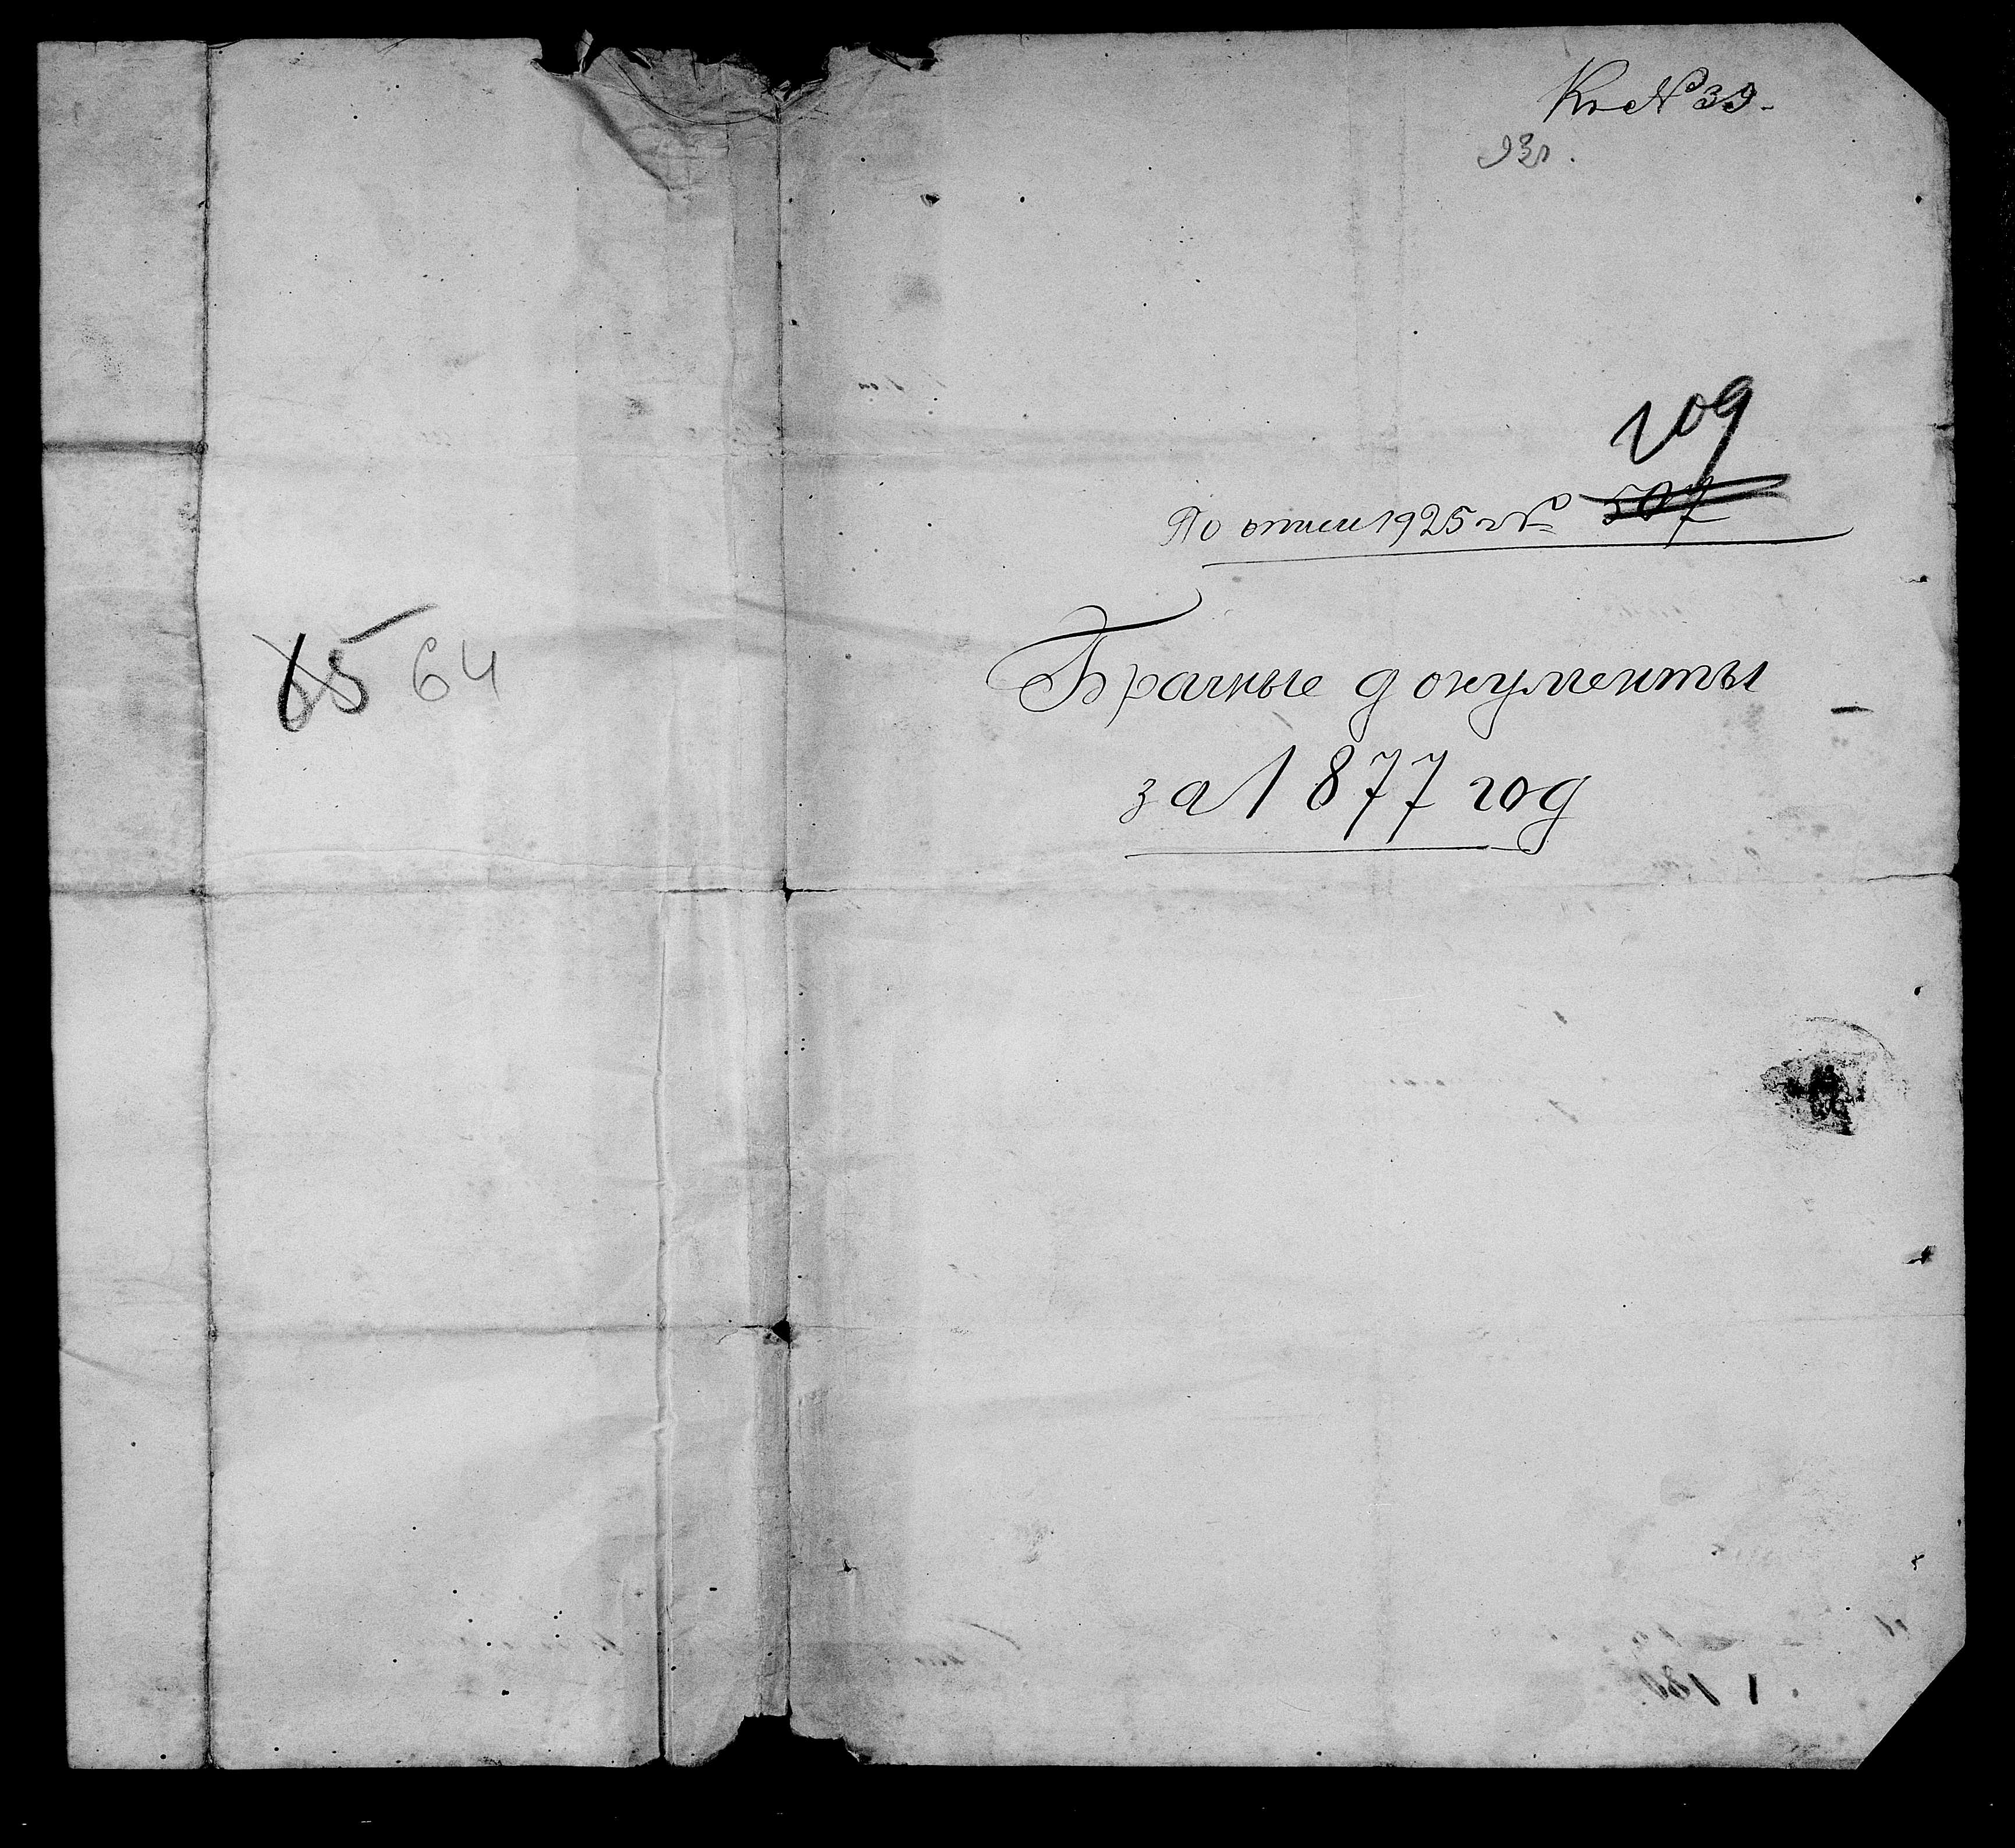 Къ № 39.
109
По описи 1925 г № 507
65 64
Брачные документы
за 1877 год